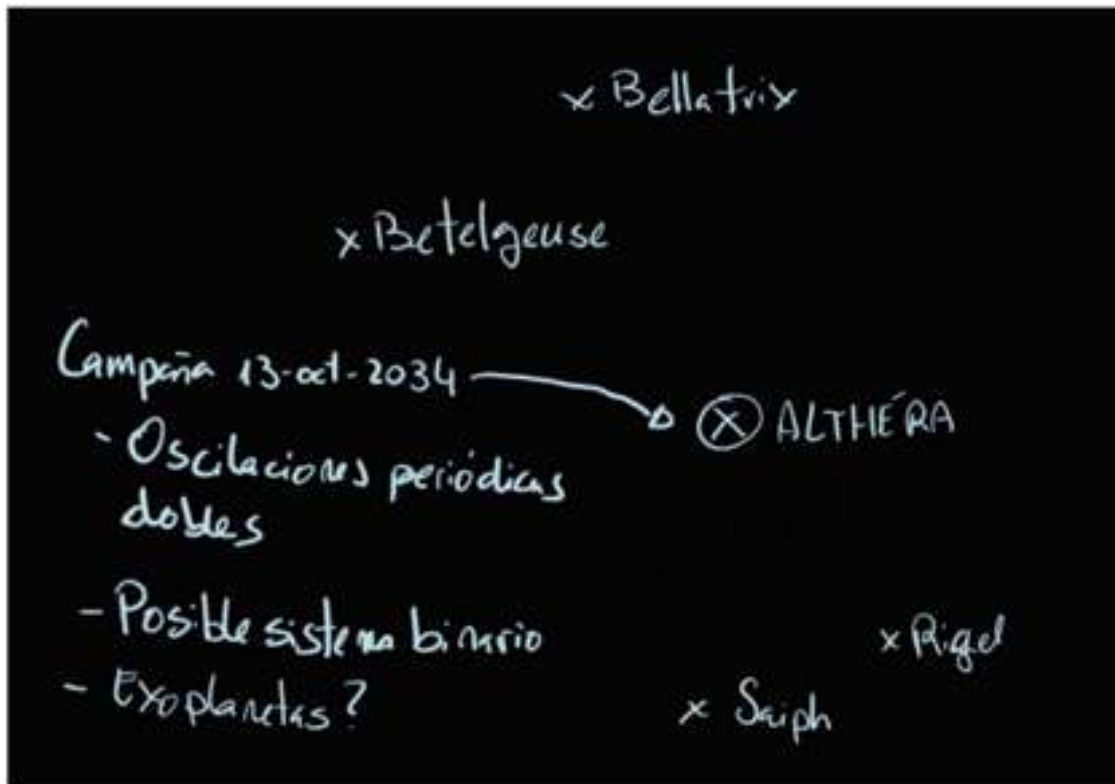 x Bellatrix
x Betelgeuse
Campaña 13-oct-2034
x ALTHÉRA
- Oscilaciones periódicas
dobles
- Posible sistema binario
- Exoplanetas?
x Rigel
x Saiph